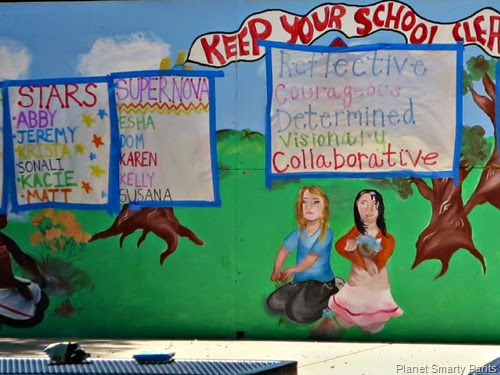 KEEP YOUR SCHOOL CLEA
STARS
ABBY
JEREMY
KRISTA
SONALI
KACIE
MATT
SUPERNOVA
ESHA
DOM
KAREN
KELLY
SUSANA
Reflective
Courageous
Determined
Visionary
Collaborative
Planet Smarty Pants